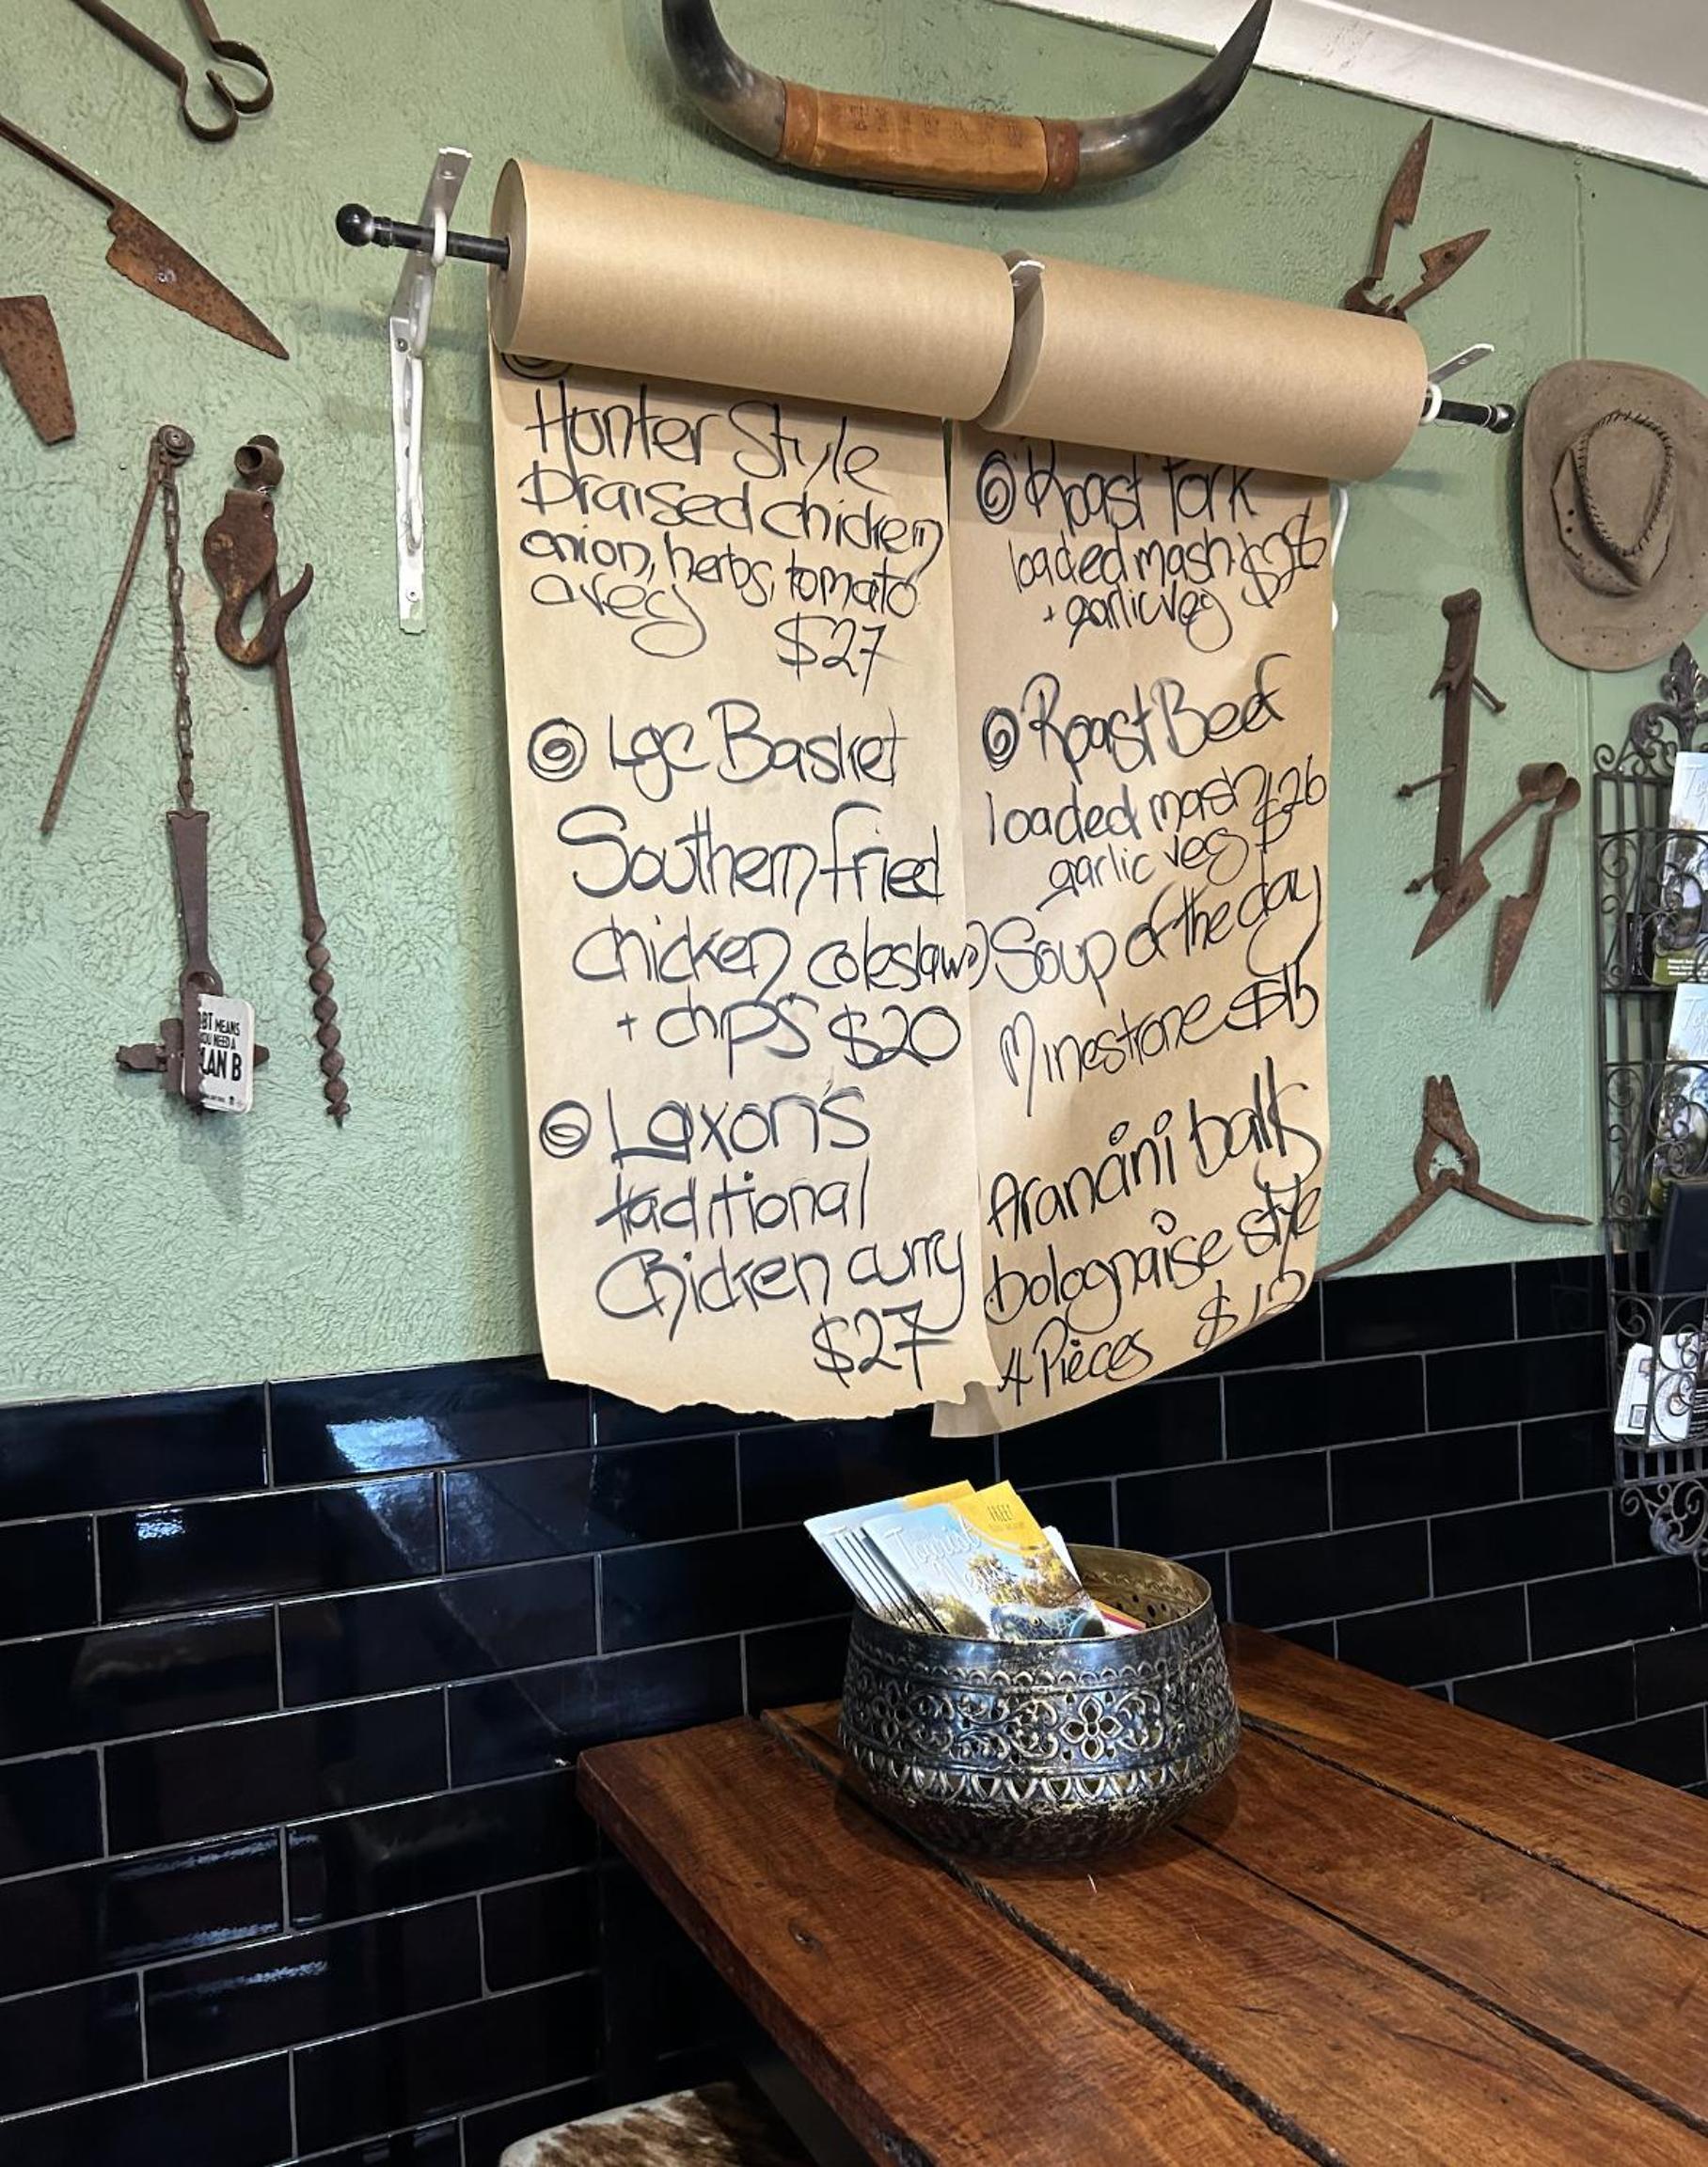 Hunter Style
Braised chicken
onion, herbs, tomato
a veg
$27
Lge Basket
Southern fried
chicken coleslaw
+ chips $20
Laxon's
traditional
Chicken curry
$27
Roast Pork
loaded mash $26
+ garlic veg
Roast Beef
loaded mash $26
garlic veg
Soup of the day
Minestrone $15
Arancini balls
bolognaise style
4 Pieces $12
MEANS
YOU NEED A
PLAN B
FREE!
Tourist
News